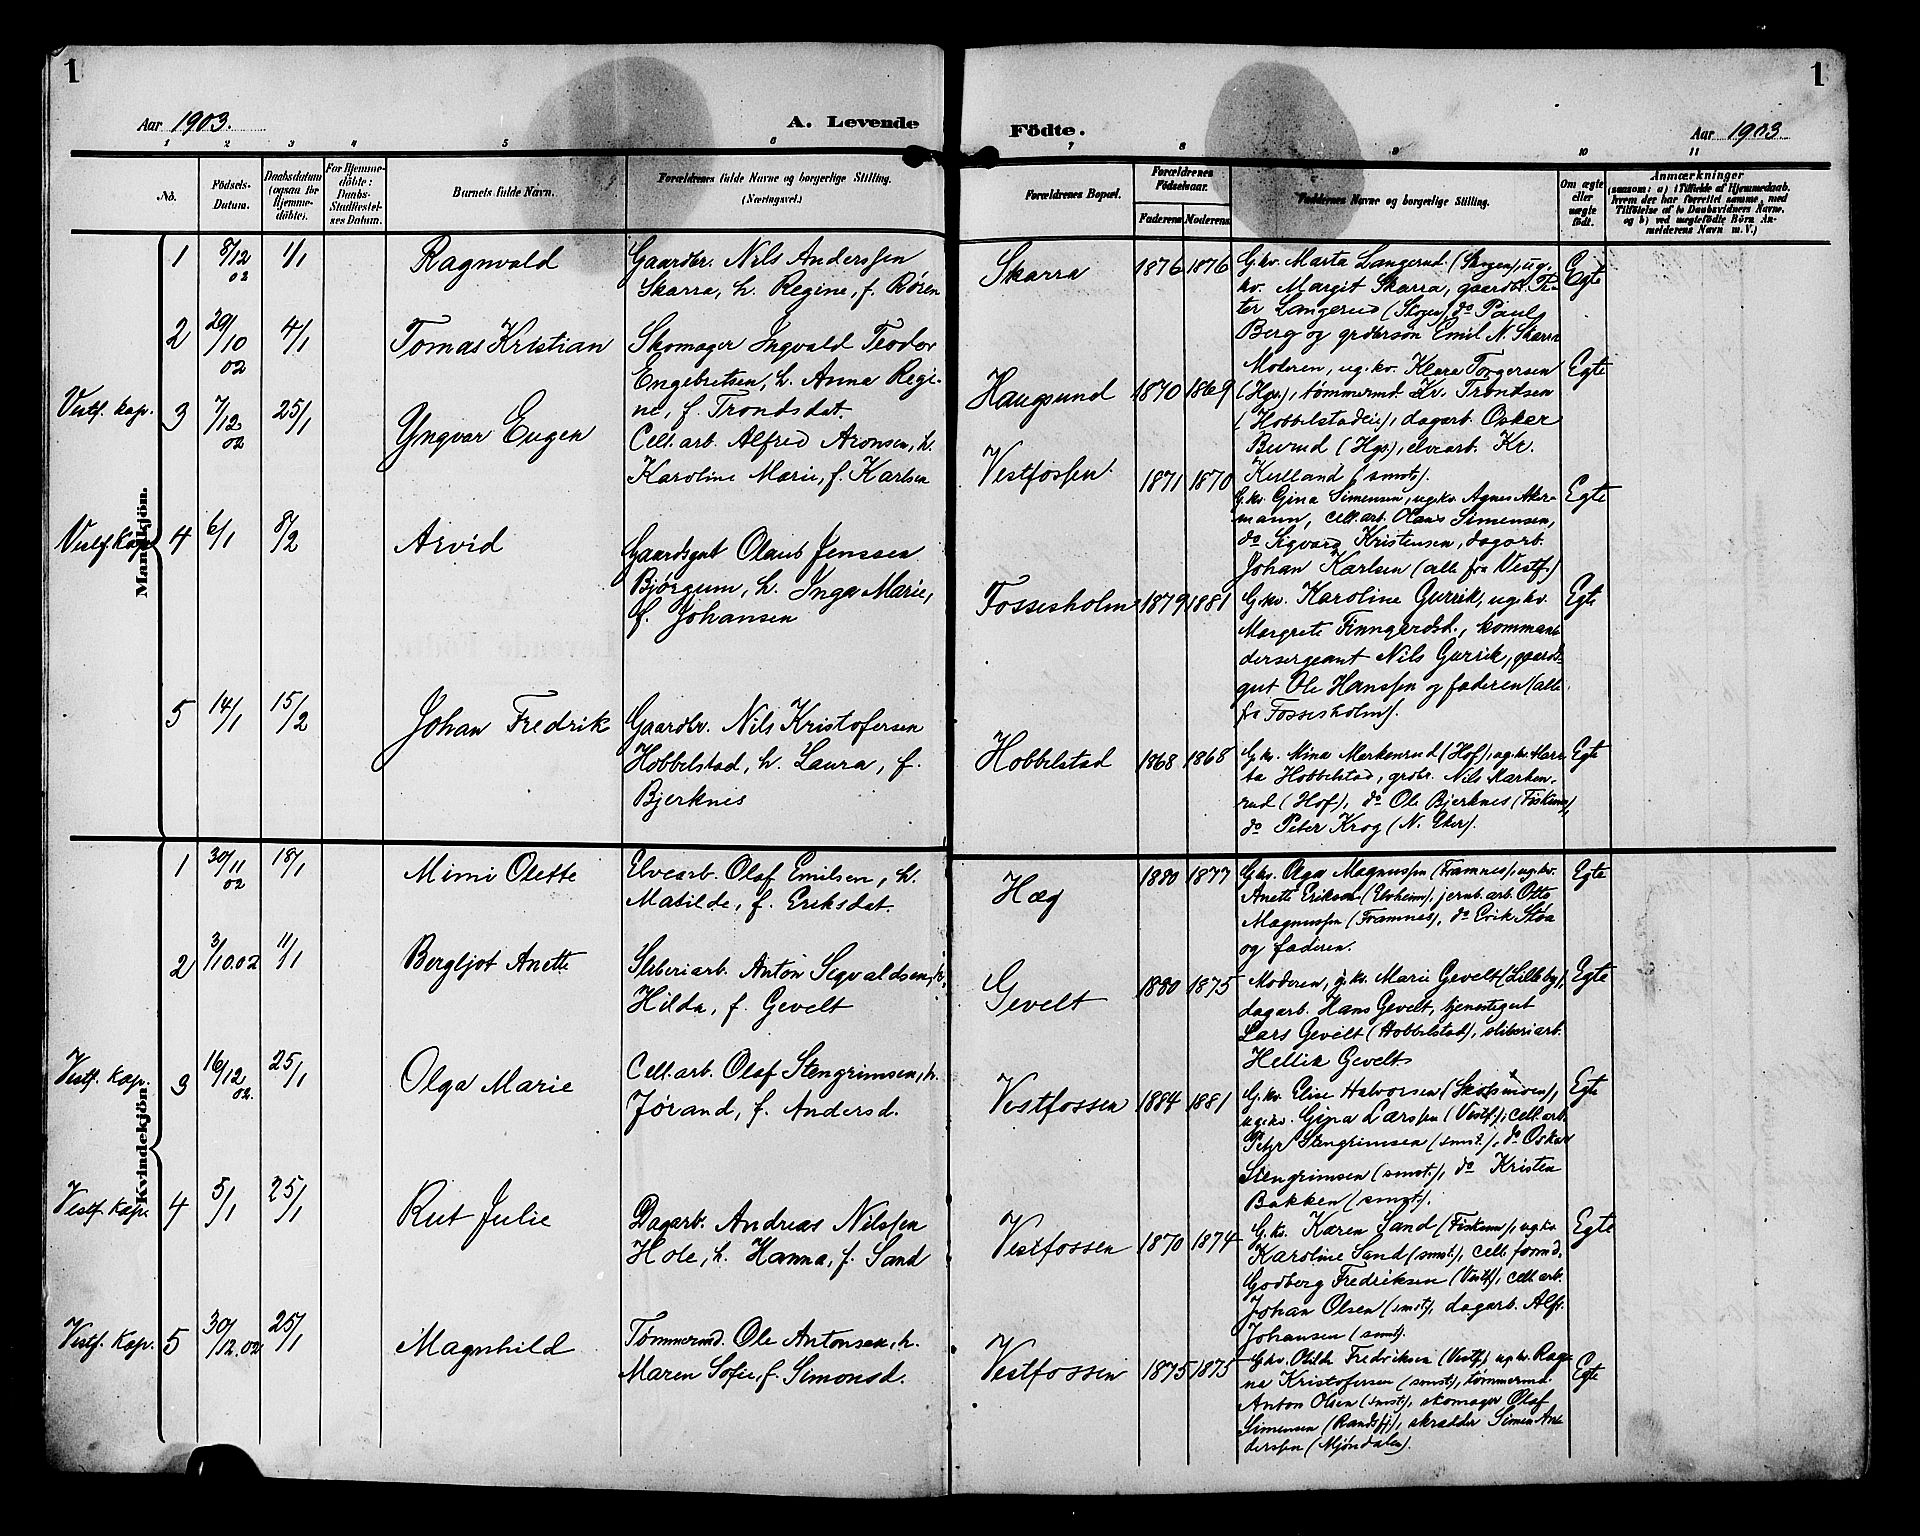 1
1
Aar 1903.
A. Levende
Födte.
Aar 1903
1 2 3 4 5 6 7 8 9 10 11
No.
Födsels-
Datum.
Daabsdatum
(ogsaa for
Hjemme-
döbte).
For Hjemme-
döbte:
Daabs-
Stadfæstel-
ses Datum.
Barnets fulde Navn.
Forældrenes fulde Navne og borgerlige Stilling.
(Næringsvei.)
Forældrenes Bopæl.
Forældrenes
Födselsaar.
Faderens Moderens
Faddernes Navne og borgerlige Stilling.
Om ægte
eller
uægte
födt.
Anmærkninger
(saasom: a) i Tilfælde af Hjemmedaab,
hvem der har forrettet samme, med
Tilföielse af to Daabsvidners Navne,
og b) ved uægtefödte Börn An-
melderens Navn m. V.)
Mandkjön.
1 8/12 02 1/1 Ragnvald
Gaardbr. Nils Anderssen
Skarra, h. Regine, f. Røren
Skarra 1876 1876
G.kv. Marta Langerud (Skogen), ug.
kv. Margit Skarra, gaardbr. Pe-
ter Langerud (Skogen), do Paul
Berg og grdbrsøn Emil N. Skarra
Egte
2 29/10 02 4/1 Tomas Kristian
Skomager Ingvald Teodor
Engebretsen, h. Anna Regi-
ne, f. Trondsdat.
Haugsund 1870 1869
Moderen, ug.kv. Klara Torgersen
(Hgs), tømmermd. Kr. Trondsen
(Hobbelstadeie), dagarb. Oskar
Burud (Hgs), elvearb. Kr.
Kulland (smst).
Egte
Vestf. kap. 3 7/12 02 25/1 Yngvar Eugen
Cell.arb. Alfred Aronsen, h.
Karoline Marie, f. Karlsen
Vestfossen 1871 1870
G.kv. Gina Simensen, ug.kv. Agnes Aker-
mann, cell.arb. Olaus Simensen,
do Sigvard Kristensen, dagarb.
Johan Karlsen (alle fra Vestf.)
Egte
Vestf. kap. 4 6/1 8/2 Arvid
Gaardsgut Olaus Jenssen
Bjørgum, h. Inga Marie,
f. Johansen
Fossesholm 1879 1881
G.kv. Karoline Gurrik, ug.kv.
Margrete Finngerdsd., komman-
dersergeant Nils Gurrik, gaards-
gut Ole Hanssen og faderen (alle
fra Fossesholm).
Egte
5 14/1 15/2 Johan Fredrik
Gaardbr. Nils Kristofersen
Hobbelstad, h. Laura, f.
Bjerknes
Hobbelstad 1868 1868
G.kv. Mina Morkenrud (Hof), ug.kv. Mar-
ta Hobbelstad, grdbr. Nils Morken-
rud (Hof), do Ole Bjerknes (Fiskum),
do Peter Krog (N. Eker).
Egte
Kvindekjön.
1 30/11 02 18/1 Mimi Olette
Elvearb. Olaf Emilsen, h.
Matilde, f. Eriksdat.
Hæg 1880 1877
G.kv. Olga Magnussen (Framnes), ug.kv.
Anette Eriksen (Elvheim), jernb.arb. Otto
Magnussen (Framnes), do Erik Stoa
og faderen.
Egte
2 3/10.02 11/1 Bergljot Anette
Sliberiarb. Anton Sigvaldsen, h.
Hilda, f. Gevelt
Gevelt 1880 1875
Moderen, g.kv. Marie Gevelt (Lilleby),
dagarb. Hans Gevelt, tjenestegut
Lars Gevelt (Hobbelstad), sliberiarb.
Hellik Gevelt
Egte
Vestf. Kap. 3 16/12 02. 25/1 Olga Marie
Cell.arb. Olaf Stengrimsen, h.
Jørand, f. Andersd.
Vestfossen 1884 1881
G.kv. Elise Halvorsen (Skotsmoen),
ug.kv. Gina Larssen (Vestf.), cell.arb.
Petr Stengrimsen (smst.), do Oskar
Stengrimsen (smst.), do Kristen
Bakken (smst).
Egte
Vestf. Kap. 4 5/1 25/1 Rut Julie
Dagarb. Andreas Nilssen
Hole, h. Hanna, f. Sand
Vestfossen 1870 1874
G.kv. Karen Sand (Fiskum), ug.kv.
Karoline Sand (smst.), cell. formd.
Godberg Fredriksen (Vestf), cell.arb.
Johan Olsen (smst), dagarb. Alf.
Johansen (smst).
Egte
Vestf. Kap. 5 30/12.02 25/1 Magnhild
Tømmermd. Ole Antonsen, h.
Maren Sofie, f. Simonsd.
Vestfossen 1875 1875
G.kv. Otilde Fredriksen (Vestf), ug.kv. Rag-
na Kristofersen (smst), tømmermd.
Anton Olsen (smst), skomager Olaf
Simensen (Randsfj), skrædder Simen An-
derssen (Mjøndalen).
Egte